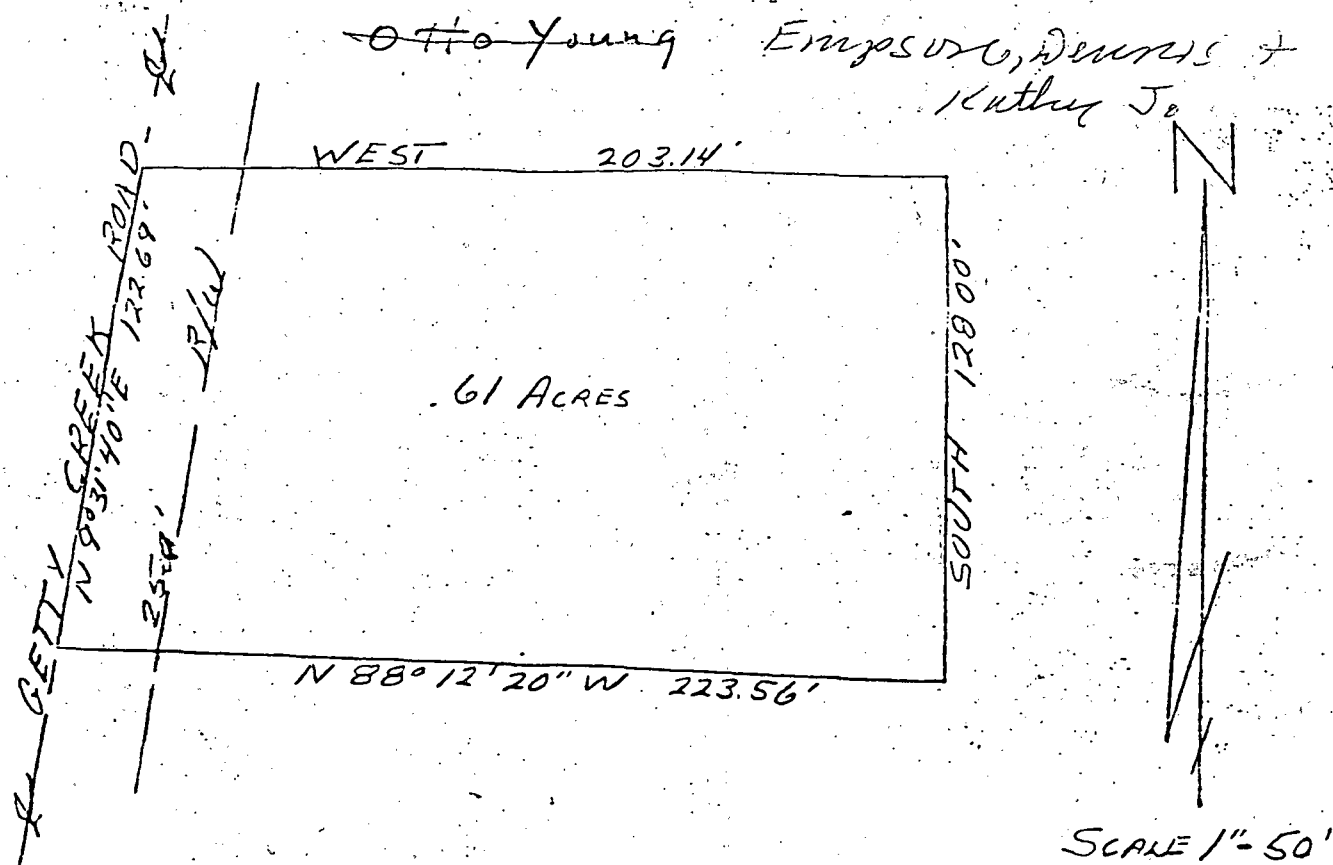 Otto Young Empson, Dennis +
Kathy J.
N
WEST 203.14'
℄ GETTY CREEK ROAD ℄
N 9°31'40"E 122.69'
25' R/W
.61 ACRES
SOUTH 128.00'
N 88°12'20" W 223.56'
SCALE 1"-50'